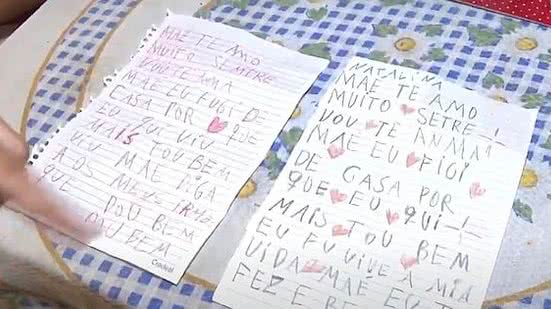 MAE TE AMO
MUITO SEMTRE
VOU TE AMA
MAE EU FUGI DE
CASA POR QUE
EU QUI VIU
MAIS TOU BEM
VIU MAE DIGA
AOS MEUS IRMÃ
QUE TOU BEM
TOU BEM
Credeal
NATALINA
MAE TE AMO
MUITO SETRE
VOU TE ANMAA
MAE EU FIGI
DE CASA POR
QUE EU QUI
MAIS TOU BEM
EU FU VIVE A MIA
VIDA MAE EU T
FEZ E BE